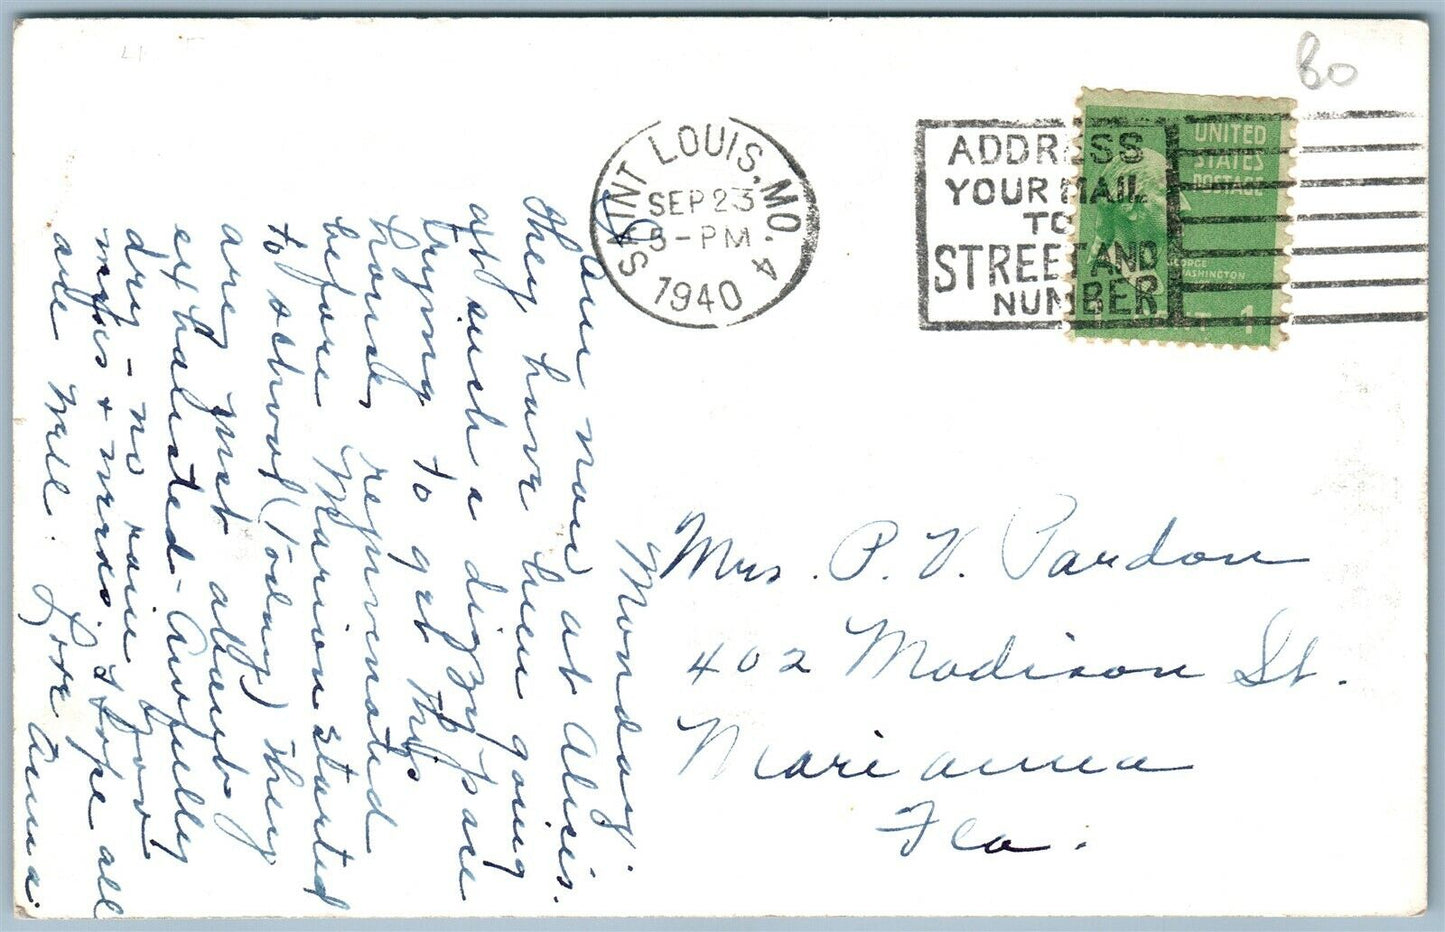 80
SAINT LOUIS, MO. 4
SEP 23
5-PM
1940
ADDRESS
YOUR MAIL
TO
STREET AND
NUMBER
UNITED
STATES
POSTAGE
GEORGE
WASHINGTON
1 CENT 1
Monday.
Am now at Alice's.
They have been going
at such a dizzy pace
trying to get this
house renovated
before Marion started
to school (today) They
are just about
exhausted - Awfully
dry - no rain for
mos + mos. Hope all
are well. Love Anna.
Mrs. P. V. Pardon
402 Madison St.
Marianna
Fla.